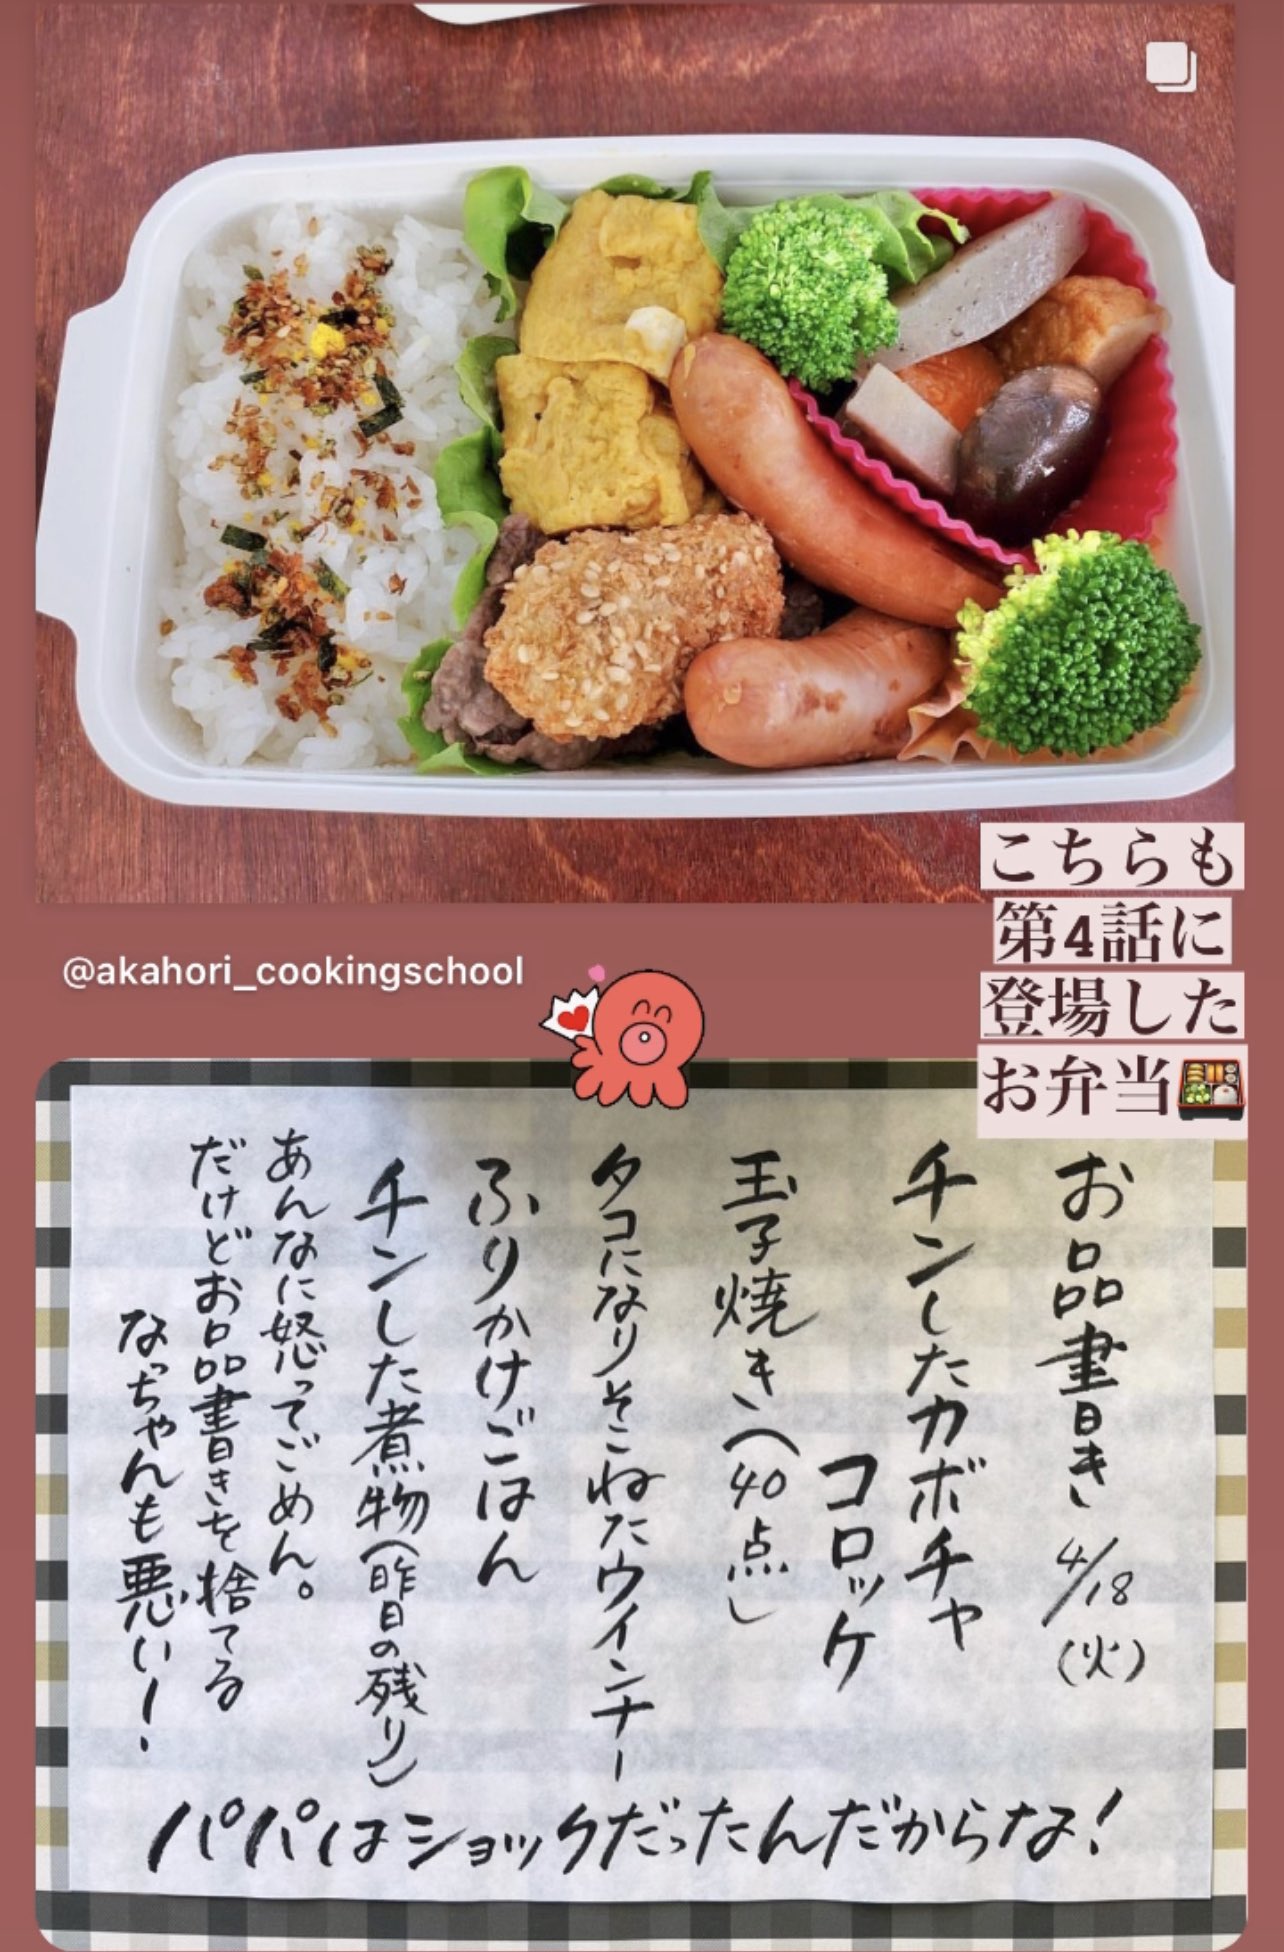 @akahori_cookingschool
こちらも
第4話に
登場した
お弁当
お品書き 4/18(火)
チンしたカボチャ
コロッケ
玉子焼き(40点)
タコになりそこねたウインナー
ふりかけごはん
チンした煮物(昨日の残り)
あんなに怒ってごめん。
だけどお品書きを捨てる
なっちゃんも悪い!
パパはショックだったんだからな!